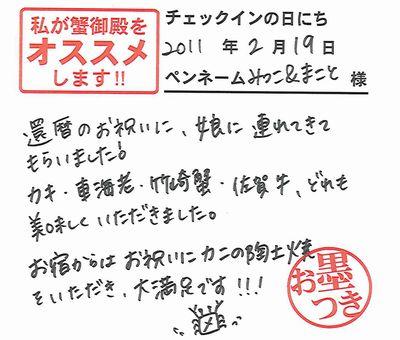 私が蟹御殿を
オススメ
します!!
チェックインの日にち
2011 年 2 月 19 日
ペンネーム みつこ&まこと 様
還暦のお祝いに、娘に連れてきて
もらいました!
カキ・車海老・竹崎蟹・佐賀牛、どれも
美味しくいただきました。
お宿からはお祝いにカニの陶土焼
をいただき、大満足です!!!
お墨つき